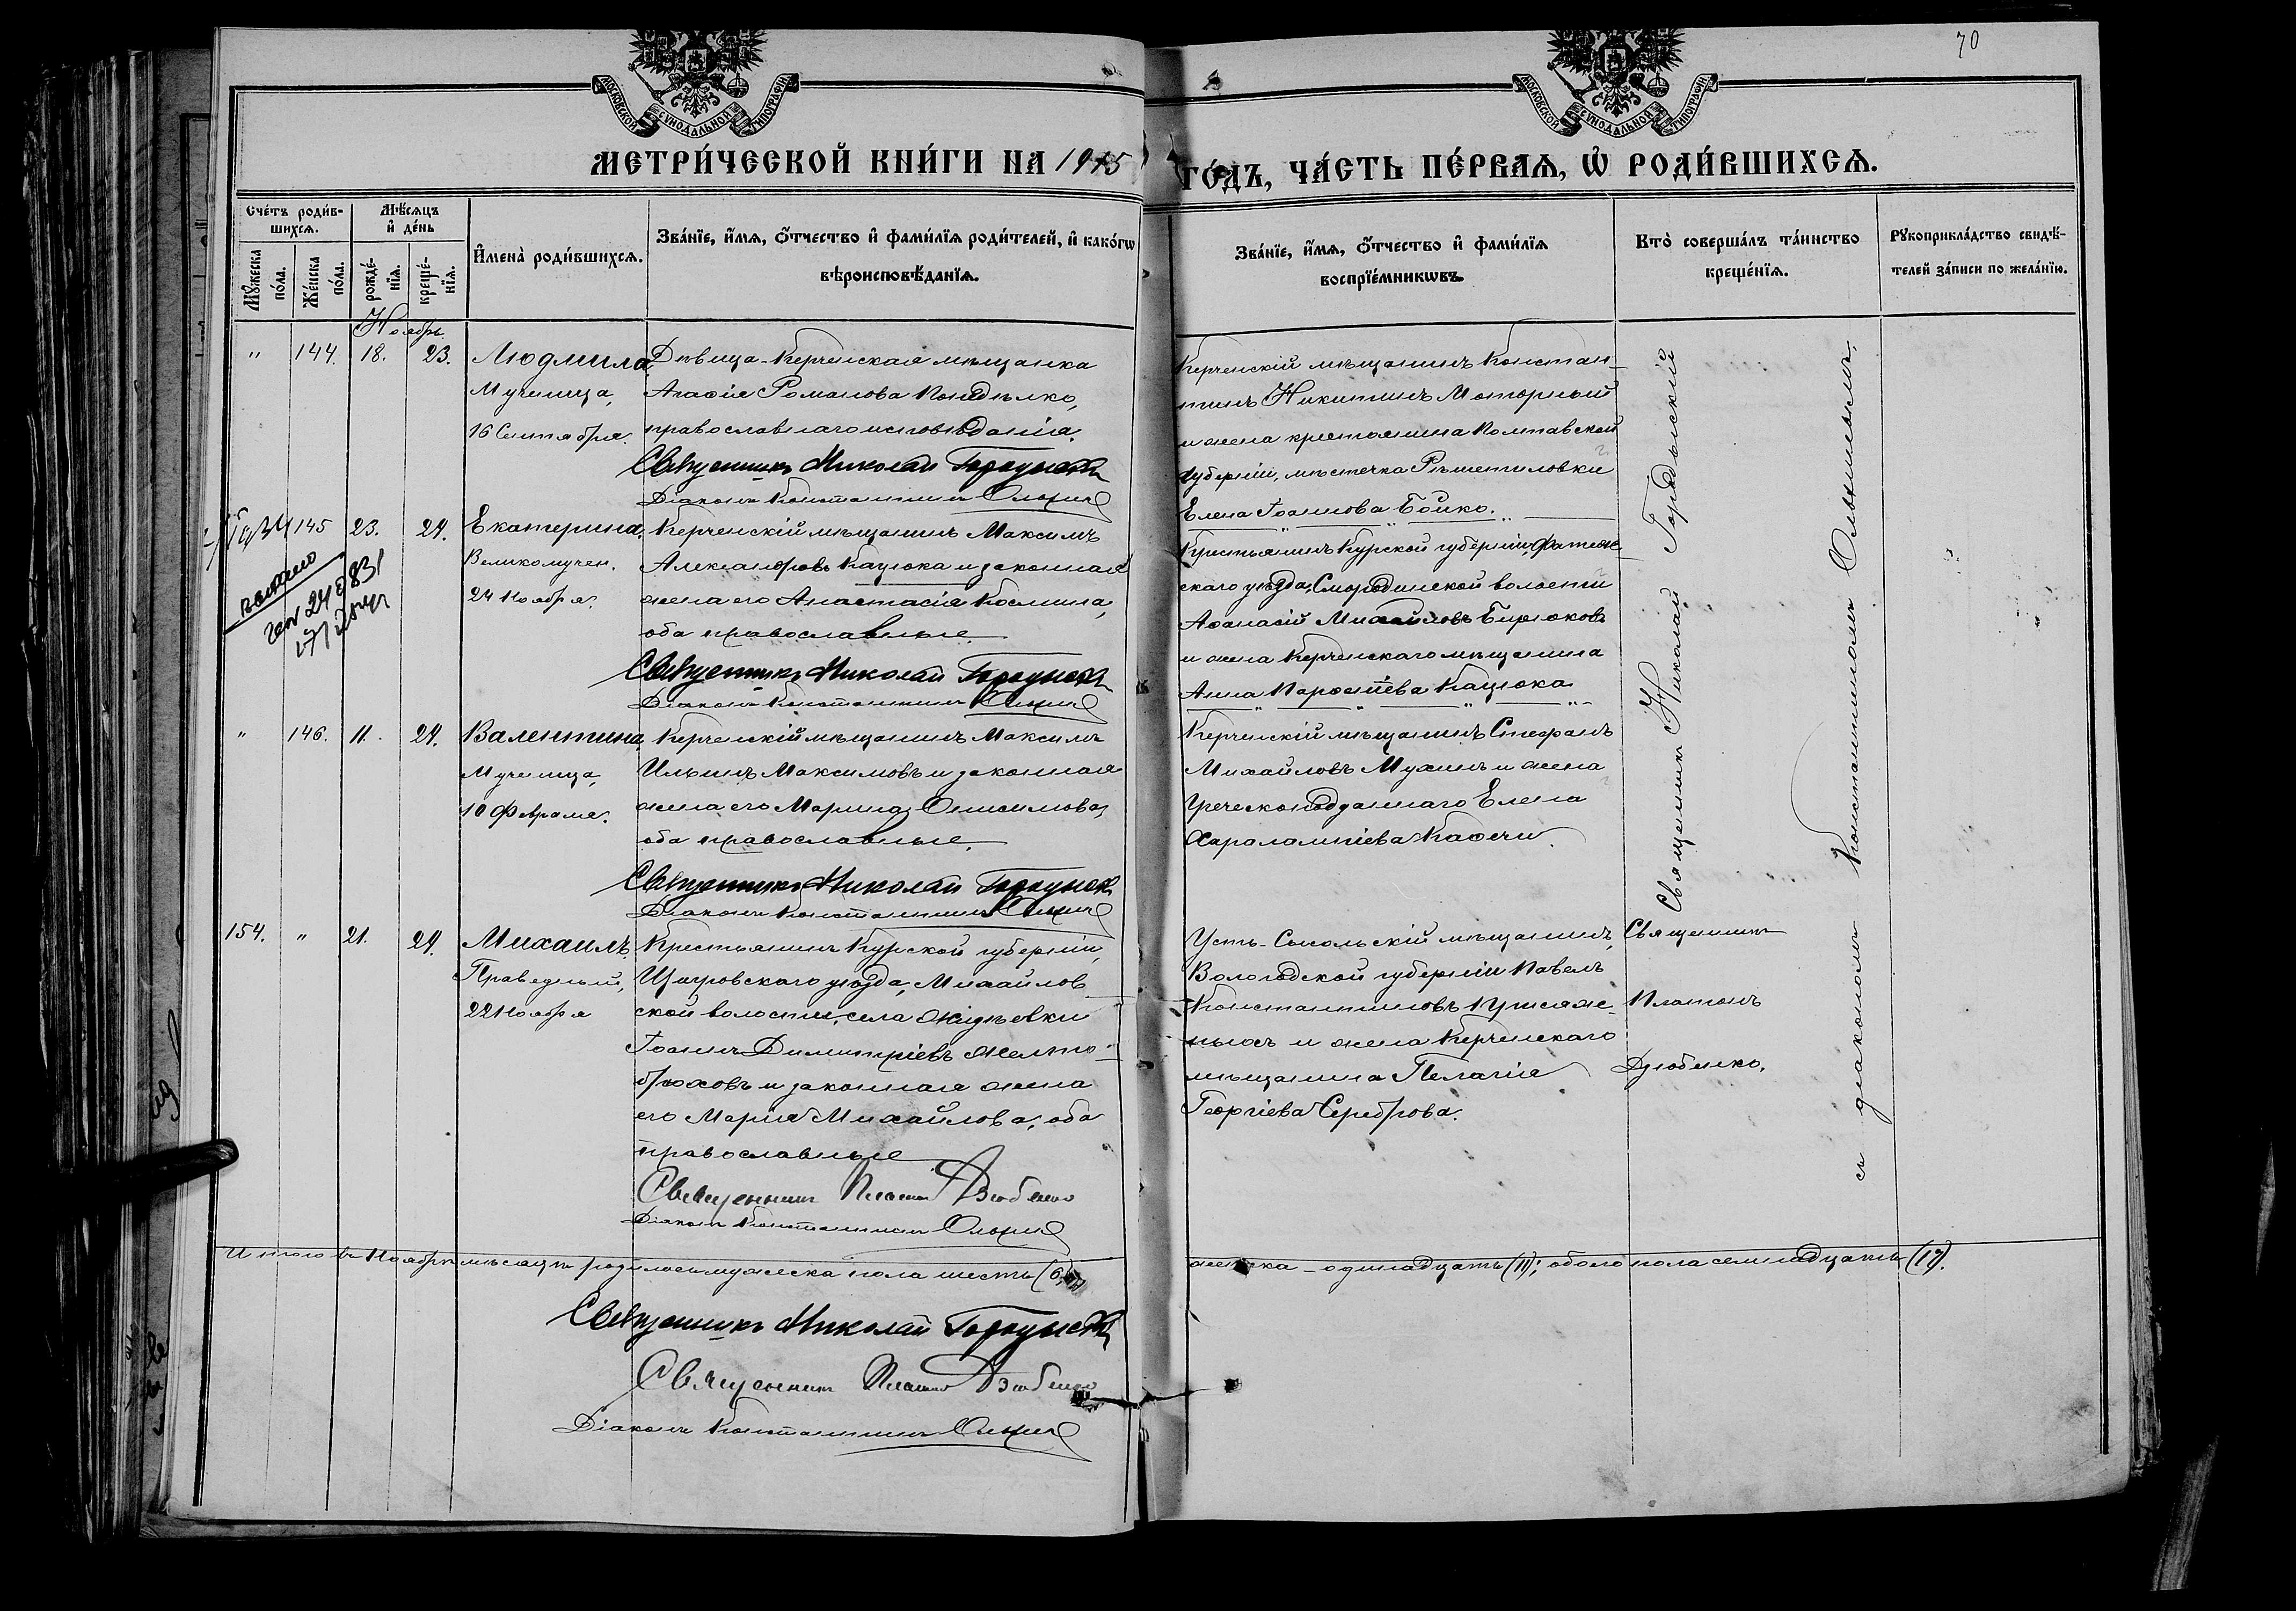 70
МОСКОВСКОЙ СѴНОДАЛЬНОЙ ТИПОГРАФІИ
МОСКОВСКОЙ СѴНОДАЛЬНОЙ ТИПОГРАФІИ
МЕТРИ́ЧЕСКОЙ КНИ́ГИ НА 1915 ГО́ДЪ, ЧА́СТЬ ПЕ́РВАѦ, Ѡ҆ РОДИ́ВШИХСѦ.
Сче́тъ роди́в-
шихсѧ.
Мѣ́сѧцъ
и҆ де́нь
Мꙋ́жеска
по́ла.
Же́нска
по́ла.
рожде́-
нїѧ.
креще́-
нїѧ.
И҆мена̀ роди́вшихсѧ.
Зва́нїе, и҆́мѧ, ѻ҆́тчество и҆ фами́лїѧ роди́телей, и҆ како́гѡ
вѣроисповѣ́данїѧ.
Зва́нїе, и҆́мѧ, ѻ҆́тчество и҆ фами́лїѧ
воспрїе́мникѡвъ.
Кто̀ соверша́лъ та́инство
креще́нїѧ.
Рꙋкоприкла́дство свидѣ́-
телей за́писи по жела́нїю.
Ноябрь
" 144. 18. 23. Людмила,
Мученица,
16 Сентября.
Дѣвица-Керченская мѣщанка
Агафія Романова Понидѣлко,
православнаго исповѣданія.
Священникъ Николай
Діаконъ Константинъ
Керченскій мѣщанинъ Констан-
тинъ Никитинъ Моторный
и жена крестьянина Полтавской
губерніи, мѣстечка Рѣшетиловки
Елена Іоаннова Бойко.
145 23. 24. Екатерина,
Великомучен.
24 Ноября.
Керченскій мѣщанинъ Максимъ
Александровъ Кацюка и законная
жена его Анастасія Космина,
оба православные.
Священникъ Николай
Діаконъ Константинъ
Крестьянинъ Курской губерніи, Фатеж-
скаго уѣзда, Смородинской волости
Аѳанасій Михайловъ Бирюковъ
и жена Керченскаго мѣщанина
Анна Парѳентіева Кацюка
" 146. 11. 24. Валентина,
Мученица,
10 Февраля.
Керченскій мѣщанинъ Максимъ
Ильинъ Максимовъ и законная
жена его Марина Онисимова,
оба православные.
Священникъ Николай
Діаконъ Константинъ
Керченскій мѣщанинъ Стефанъ
Михайловъ Мухинъ и жена
Греческоподданнаго Елена
Харалампіева Кафечи.
Священникъ Николай
съ діакономъ Константиномъ
154. " 21. 24. Михаилъ,
Праведный,
22 Ноября
Крестьянинъ Курской губерніи,
Щигровскаго уѣзда, Михайлов-
ской волости, села Жидѣевки
Іоаннъ Димитріевъ Желто-
брюховъ и законная жена
его Марія Михайлова, оба
православные
Священникъ Платонъ Дзюбенко
Діаконъ Константинъ
Усть-Сысольскій мѣщанинъ,
Вологодской губерніи Павелъ
Константиновъ
и жена Керченскаго
мѣщанина Пелагія
Георгіева Сереброва.
Священникъ
Платонъ
Дзюбенко.
Итого въ Ноябрѣ мѣсяцѣ родилось мужеска пола шесть (6),
женска - одиннадцать (11); обоего пола семнадцать (17).
Священникъ Николай
Священникъ Платонъ Дзюбенко
Діаконъ Константинъ